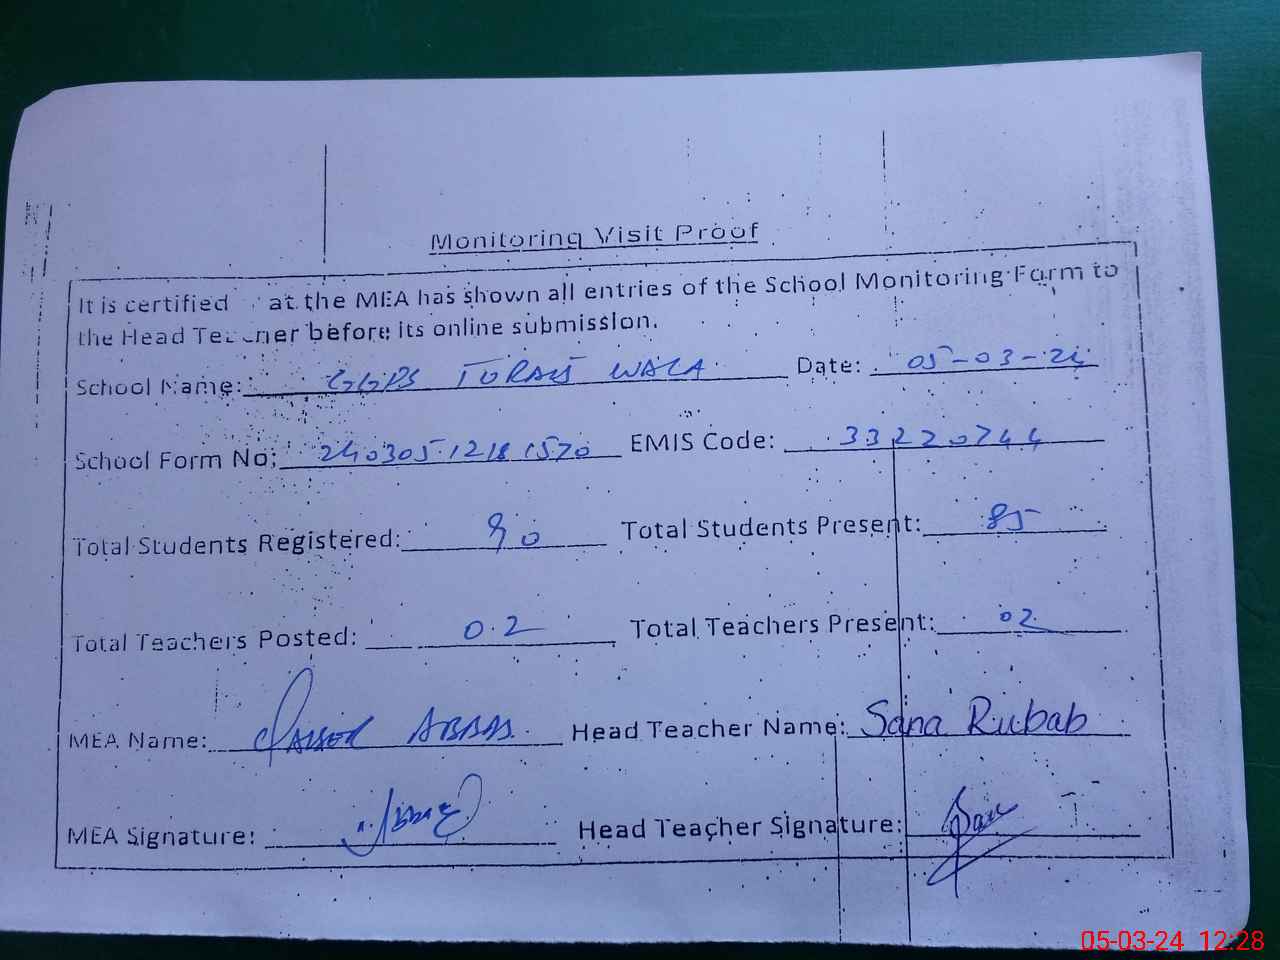 Monitoring Visit Proof
It is certified at the MEA has shown all entries of the School Monitoring Form to
the Head Teacher before its online submission.
School Name: GGPS WALA Date: 05-03-24
School Form No: 24030512181570 EMIS Code: 33220744
Total Students Registered: 90 Total Students Present: 85
Total Teachers Posted: 02 Total Teachers Present: 02
MEA Name: QAISER ABBAS Head Teacher Name: Sana Rubab
MEA Signature: Head Teacher Signature:
05-03-24 12:28